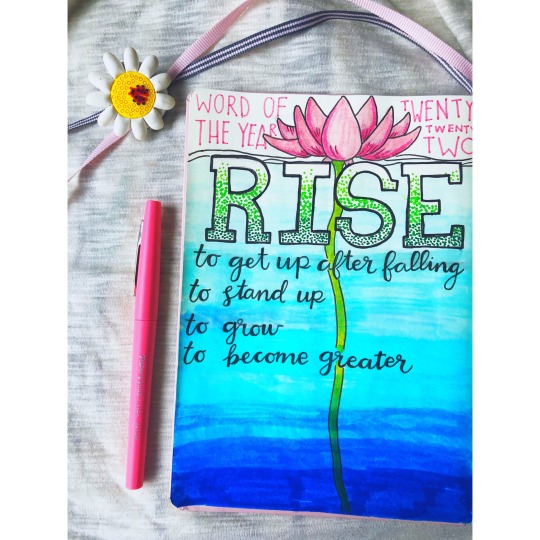 WORD OF
THE YEAR
TWENTY
TWENTY
TWO
RISE
to get up after falling
to stand up
to grow
to become greater